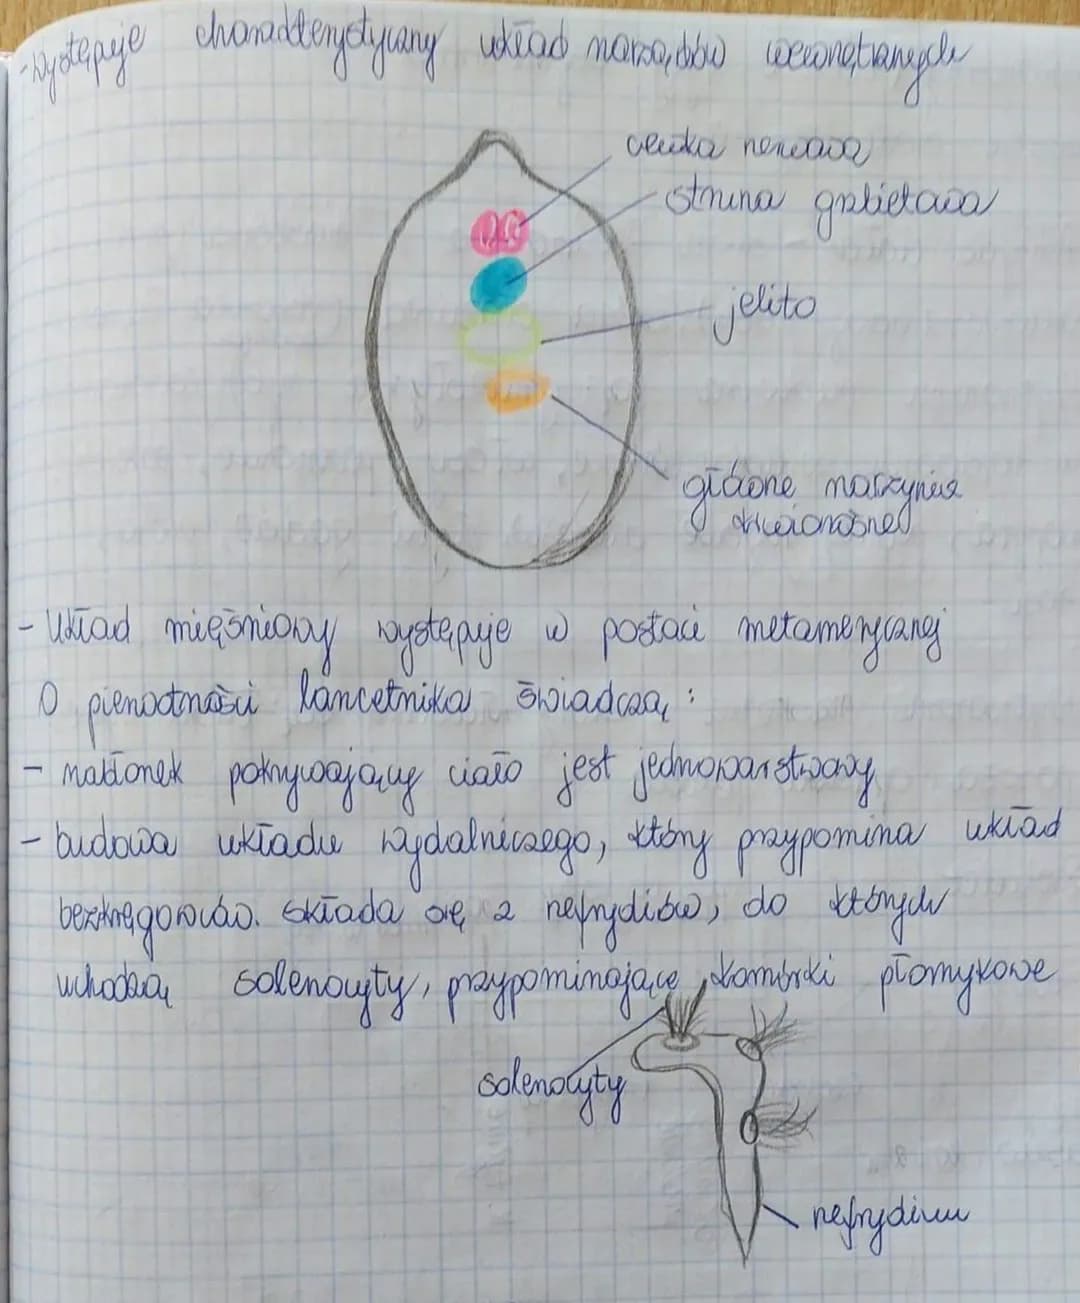 - Występuje charakterystyczny układ narządów wewnętrznych
cewka nerwowa
struna grzbietowa
jelito
główne naczynie
krwionośne
- Układ mięśniowy występuje w postaci metamerycznej
O pierwotności lancetnika świadczą:
- nabłonek pokrywający ciało jest jednowarstwowy
- budowa układu wydalniczego, który przypomina układ
bezkręgowców. Składa się z nefrydiów, do których
wchodzą solenocyty, przypominające komórki płomykowe
solenocyty
nefrydium